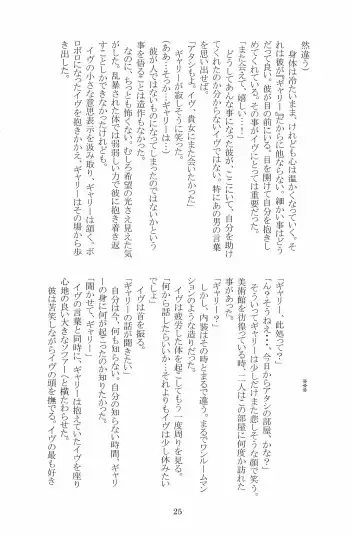 然違う。
　身体は冷たいまま、けれども心は温かくなっていく。そ
れは彼が『ギャリー』だからに他ならない。細かい事はどう
だって良い。彼が目の前にいる。目を開けて自分を抱きし
めてくれている。その事がイヴにとっては重要だった。
「また会えて、嬉しい…！」
　どうしてあんな事になった彼が、ここにいて、自分を助け
てくれたのか分からないイヴではない。特にあの男の言葉
を思い出せば。
「アタシもよ、イヴ。貴女にまた会いたかった」
　ギャリーが寂しそうに笑った。
「ああ…そっか…ギャリーは…」
　彼が人ではないものになってしまったのではないかという
事を悟ることは造作もなかった。
　なのに、ちっとも怖くない。むしろ希望の光さえ見えた気
がした。乱暴された体では弱弱しい力で彼に抱き着き返
すことしかできなかったけれども。
　イヴの小さな意思表示を汲み取り、ギャリーは頷く。ボ
ロボロになったイヴを抱きかかえ、ギャリーはその場から歩
き出した。
***
「ギャリー、此処って？」
「ん？そうねぇ・・・、今日からアタシの部屋、かな？」
　そういってギャリーは少しだけまた悲しそうな顔で笑う。
美術館を彷徨っている時、二人はこの部屋に何度か訪れた
事があった。
　しかし、内装はその時とまるで違う。まるでワンルームマン
ションのような造りだった。
「ギャリー？」
　イヴは疲労した体を起こしてもう一度周りを見る。
「何から話したらいいか…それよりもイヴは少し休みたい
でしょ」
　イヴは首を振る。
「ギャリーの話が聞きたい」
　自分は今、何も知らない。自分の知らない時間、ギャリ
ーの身に何が起こったのか知りたかった。
「聞かせて、ギャリー」
　イヴの言葉と同時に、ギャリーは抱えていたイヴを座り
心地の良い大きなソファーへと横たわらせた。
　彼は苦笑しながらイヴの頭を撫でる。イヴの最も好き
25